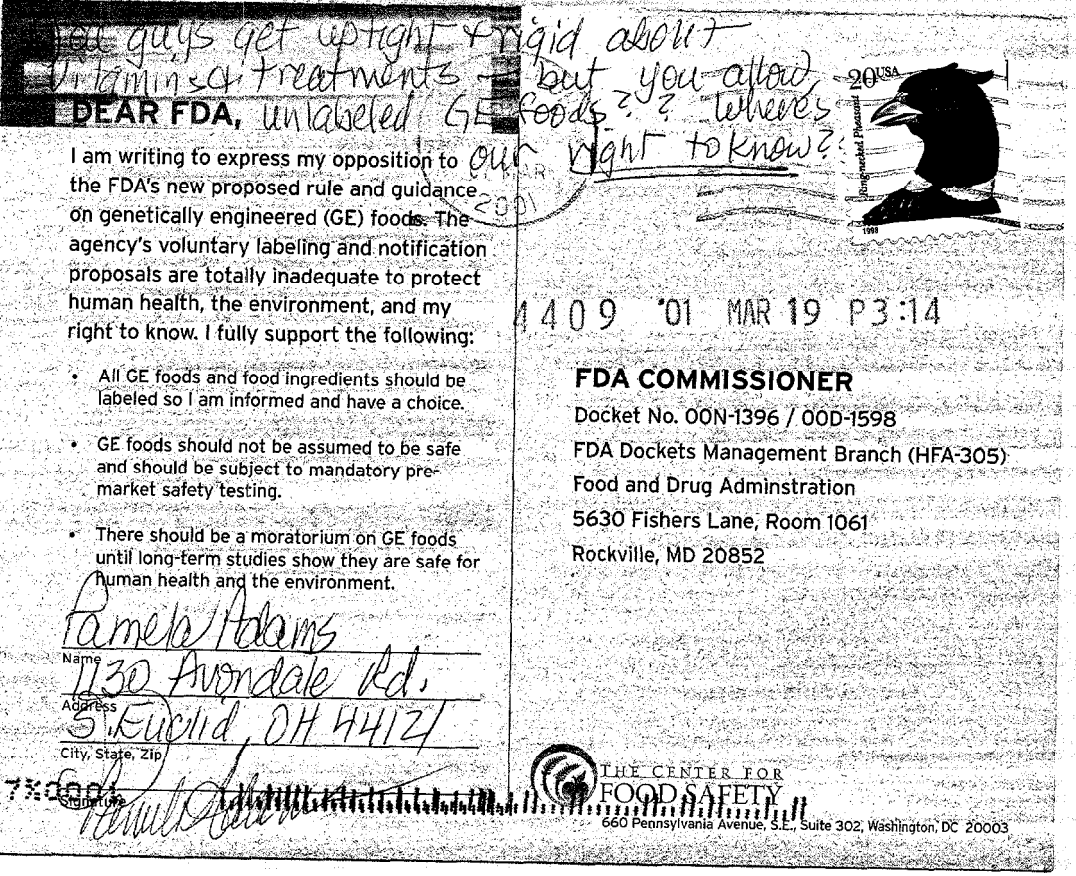 You guys get uptight + rigid about
vitamins & treatments - but you allow
unlabeled GE foods?? Where's
our right to know?
DEAR FDA,
I am writing to express my opposition to
the FDA's new proposed rule and guidance
on genetically engineered (GE) foods. The
agency's voluntary labeling and notification
proposals are totally inadequate to protect
human health, the environment, and my
right to know. I fully support the following:
• All GE foods and food ingredients should be
labeled so I am informed and have a choice.
• GE foods should not be assumed to be safe
and should be subject to mandatory pre-
market safety testing.
• There should be a moratorium on GE foods
until long-term studies show they are safe for
human health and the environment.
Pamela Adams
Name
1130 Avondale Rd.
Address
S. Euclid, OH 44121
City, State, Zip
Pamela Adams
Signature
20USA
Ring-necked Pheasant
1998
2001
4409 '01 MAR 19 P3:14
FDA COMMISSIONER
Docket No. 00N-1396 / 00D-1598
FDA Dockets Management Branch (HFA-305)
Food and Drug Adminstration
5630 Fishers Lane, Room 1061
Rockville, MD 20852
THE CENTER FOR
FOOD SAFETY
660 Pennsylvania Avenue, S.E., Suite 302, Washington, DC 20003